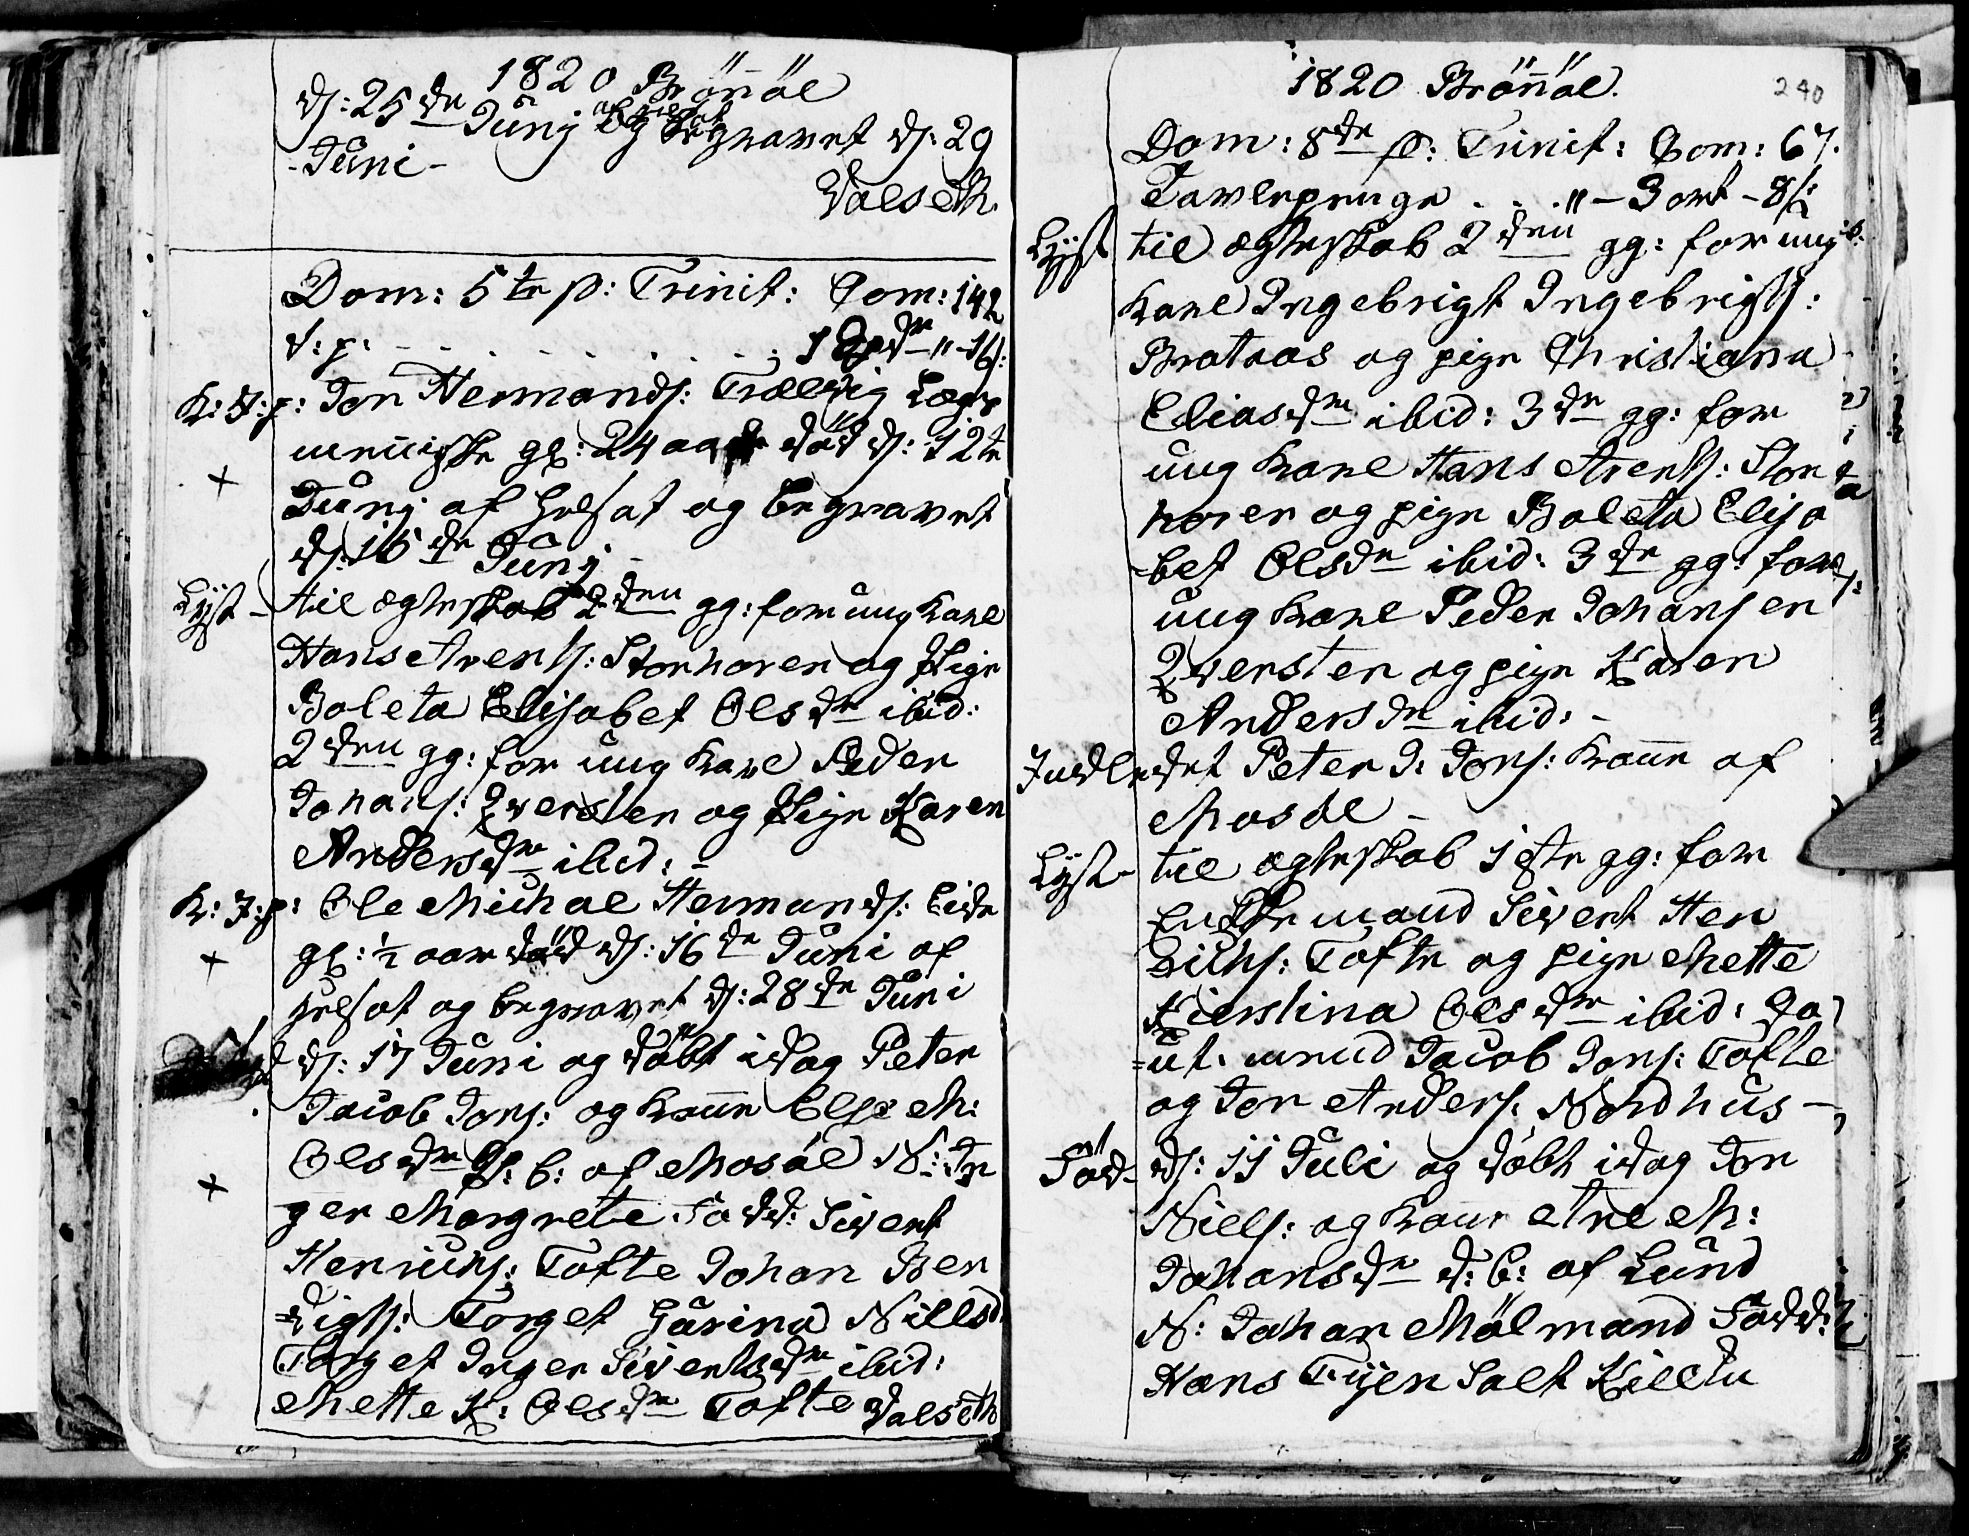 1820 Brönöe
d: 25de Junj af Helsot og begravet d: 29
-Juni-
Valseth.
Dom: 5te p: Trinit: Com: 142
t: p: - - - - - 1 Spdr „ - 16 s:
K: J: p: Jon Hermands: Trælvig Lægs
menniske gl: 24 aar död d: 12te
Junj af Helsot og begravet
d: 16de Junj
Lyst - til ægteskab 2den gg: for ung Karl
Hans Arents: Storhoren og Pige
Boleta Elisabet Olsdr ibid:
2den gg: for ung Karl Peder
Johans: Qversten og Pige Karen
Andersdr ibid: -
K: J: p: Ole Michael Hermands: Eide
gl: ½ aar död d: 16de Juni af
Helsot og begravet d: 28de Juni
d: 17 Juni og döbt idag Peter
Jacob Jons: og Kone Else M:
Olsdr d: b: af Mosöe N: In
ger Margrete Fadd: Sivert
Henrichs: Tofte Johan Ben
digts: Torget Harina Nillsd
Torget Inger Sivertsdr ibid:
Mette K: Olsdr Tofte Valseth
1820 Brönöe.
240
Dom: 8de p: Trinit: Com: 67.
Tavlepenge . . . „ - 3 ort - 8 s:
Lyst til ægteskab 2den gg: for ung
Karl Ingebrigt Ingebrigts:
Brataas og pige Christiana
Eliasdr ibid: 3de gg: for
ung Karl Hans Arents: Stor
horen og pige Boleta Elisa
-bet Olsdr ibid: 3de gg: for
ung Karl Peder Johansen
Qversten og pige Karen
Andersdr ibid: -
Indledet Peter J: Jons: Kone af
Mosöe -
Lyst - til ægteskab 1ste gg: for
Enkemand Sivert Hen
richs: Tofte og pige Mette
Kierstina Olsdr ibid: Ca
-ut: mend Jacob Jons: Tofte
og Jon Anders: Nordhus -
Föd - d: 11 Juli og döbt idag Jon
Niels: og Kone Ane M:
Johansdr d: b: af Lund
N: Johan Mölmand Fadd:
Hans Tijensalt Kilda